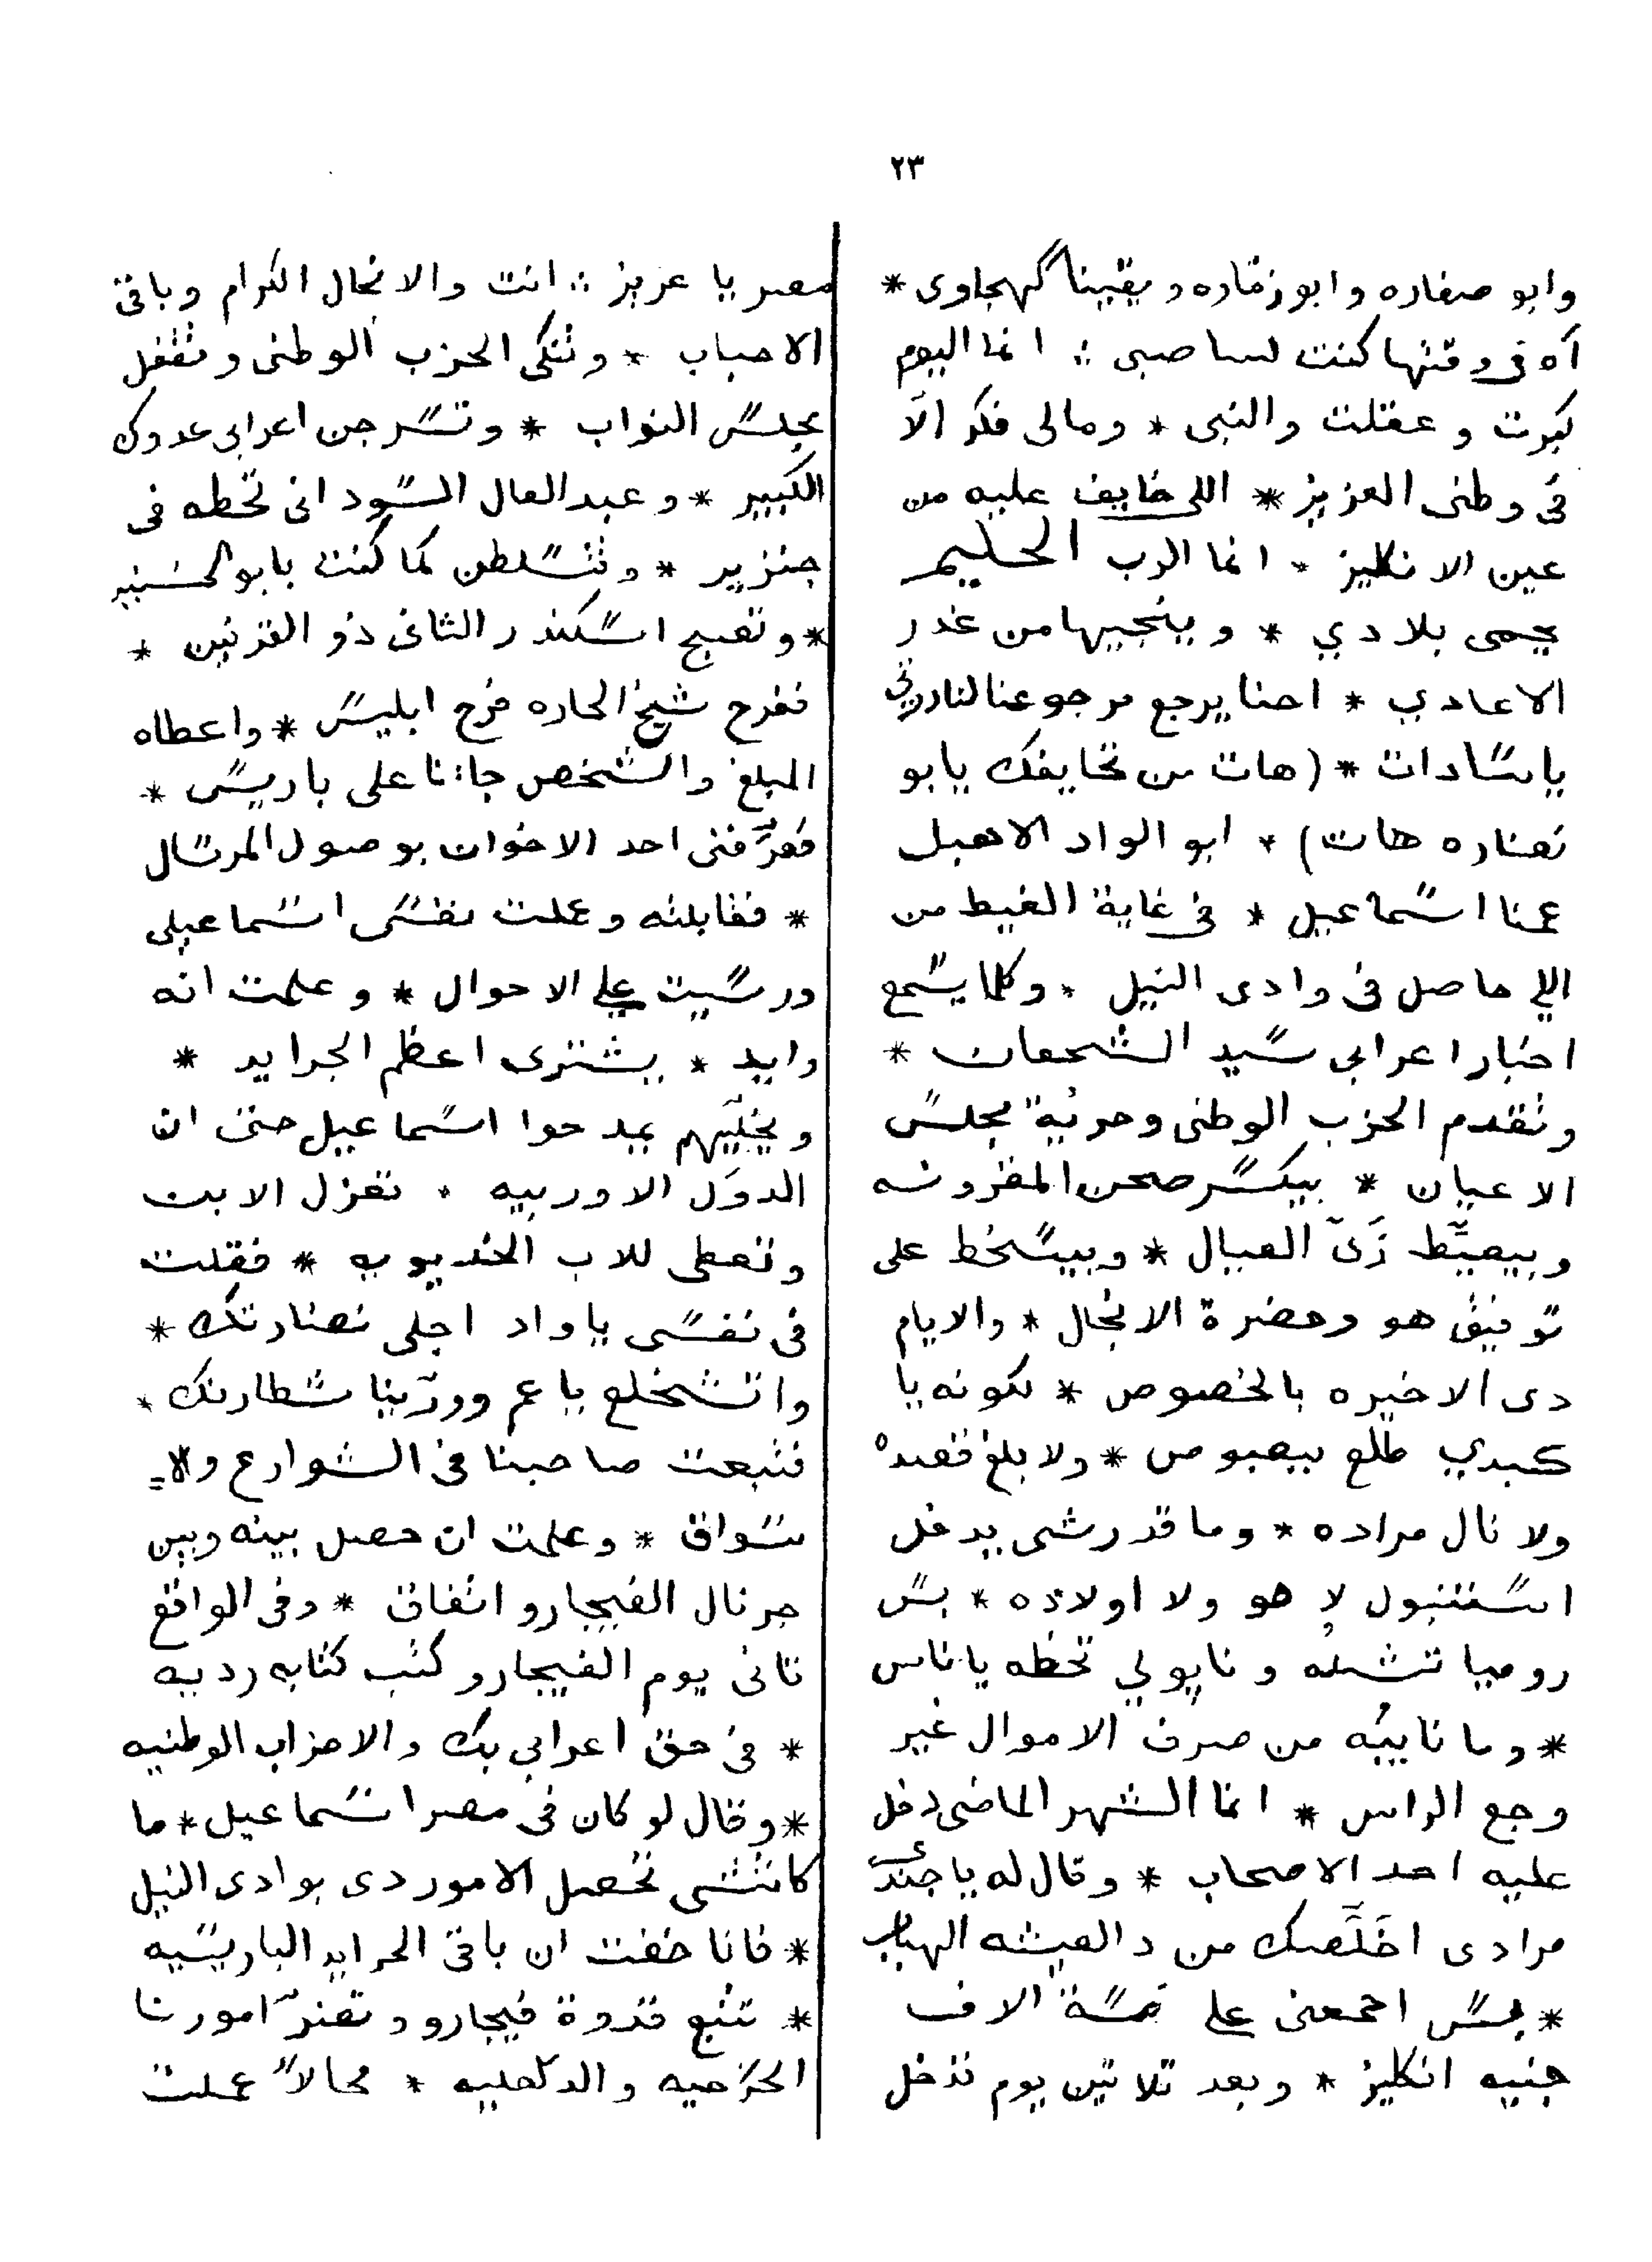 ٢٣
وابو صفاره وابو زقاره و يقينا گهجاوى *
آه فى وقتها كنت لسا صبى ؞ انما اليوم
كبرت و عقلت والنبى * ومالى فكر الّا
فى وطنى العزيز * اللى خايف عليه من
عين الانكليز * انما الرب الحليم
يحمى بلادي * وينجيها من غدر
الاعادي * احنا يرجع مرجوعنا لنادرتى
ياسادات * (هات من تحايفك يابو
نضاره هات) * ابو الواد الاهبل
عمنا اسماعيل * فى غاية الغيظ من
اللي حاصل فى وادى النيل * وكلما يسمع
اخبار اعرابى سيد الشجعان *
وتقدم الحزب الوطنى وحرية مجلس
الاعيان * بيكسر صحن المقرونه
وبيعيّط زَىّ العيال * وبيسخط على
توفيق هو وحضرة الانجال * والايام
دى الاخيره بالخصوص * لكونه يا
كبدي طلع بيصبوص * ولا بلغ قصده
ولا نال مراده * وما قدرشى يدخل
استنبول لا هو ولا اولاده * بس
روميا تشيله و ناپولي تحطه يا ناس
* وما نابيه من صرف الاموال غير
وجع الراس * انما الشهر الماضى دخل
عليه احد الاصحاب * وقال له يا جندى
مرادى اخَلَّصك من دالعيشه الهباب
* بس احمعنى على خمسة الاف
جنيه انكليز * وبعد تلاتين يوم تدخل
مصر يا عزيز ؞ انت والانجال الكرام وباقى
الاحباب * وتنكى الحزب الوطنى وتقفل
مجلس النواب * وتسرجن اعرابى عدوك
الكبير * وعبد العال السودانى تحطه فى
جنزير * وتتسلطن كما كنت يابو السنبير
* وتصبح اسكندر الثانى ذو القرنين *
ففرح شيخ الحاره فرح ابليس * واعطاه
المبلغ والشخص جاءنا على باريس *
فعرّفنى احد الاخوان بوصول المرسال
* فقابلته وعملت نفسى اسماعيلى
ورسيت على الاحوال * وعلمت انه
رايد * يشترى اعظم الجرايد *
ويخلّيهم يمدحوا اسماعيل حتى ان
الدوَل الاوربيه * تعزل الابن
وتعطى للاب الخديويه * فقلت
فى نفسى ياواد اجلى نضارتك *
واتشخلع ياعم وورّينا شطارتك *
فتبعت صاحبنا فى الشوارع والا=
سواق * وعلمت ان حصل بينه وبين
جرنال الفيجارو اتفاق * وفى الواقع
تانى يوم الفيجارو كتب كتابه رديه
* فى حق اعرابى بك والاحزاب الوطنيه
* وقال لو كان فى مصر اسماعيل * ما
كانتشى تحصل الامور دى بوادى النيل
* فانا خفت ان باقى الجرايد الباريسيه
* تتبع قدوة فيجارو وتضرّ امورنا
الخارجيه والداخليه * محالاً عملت